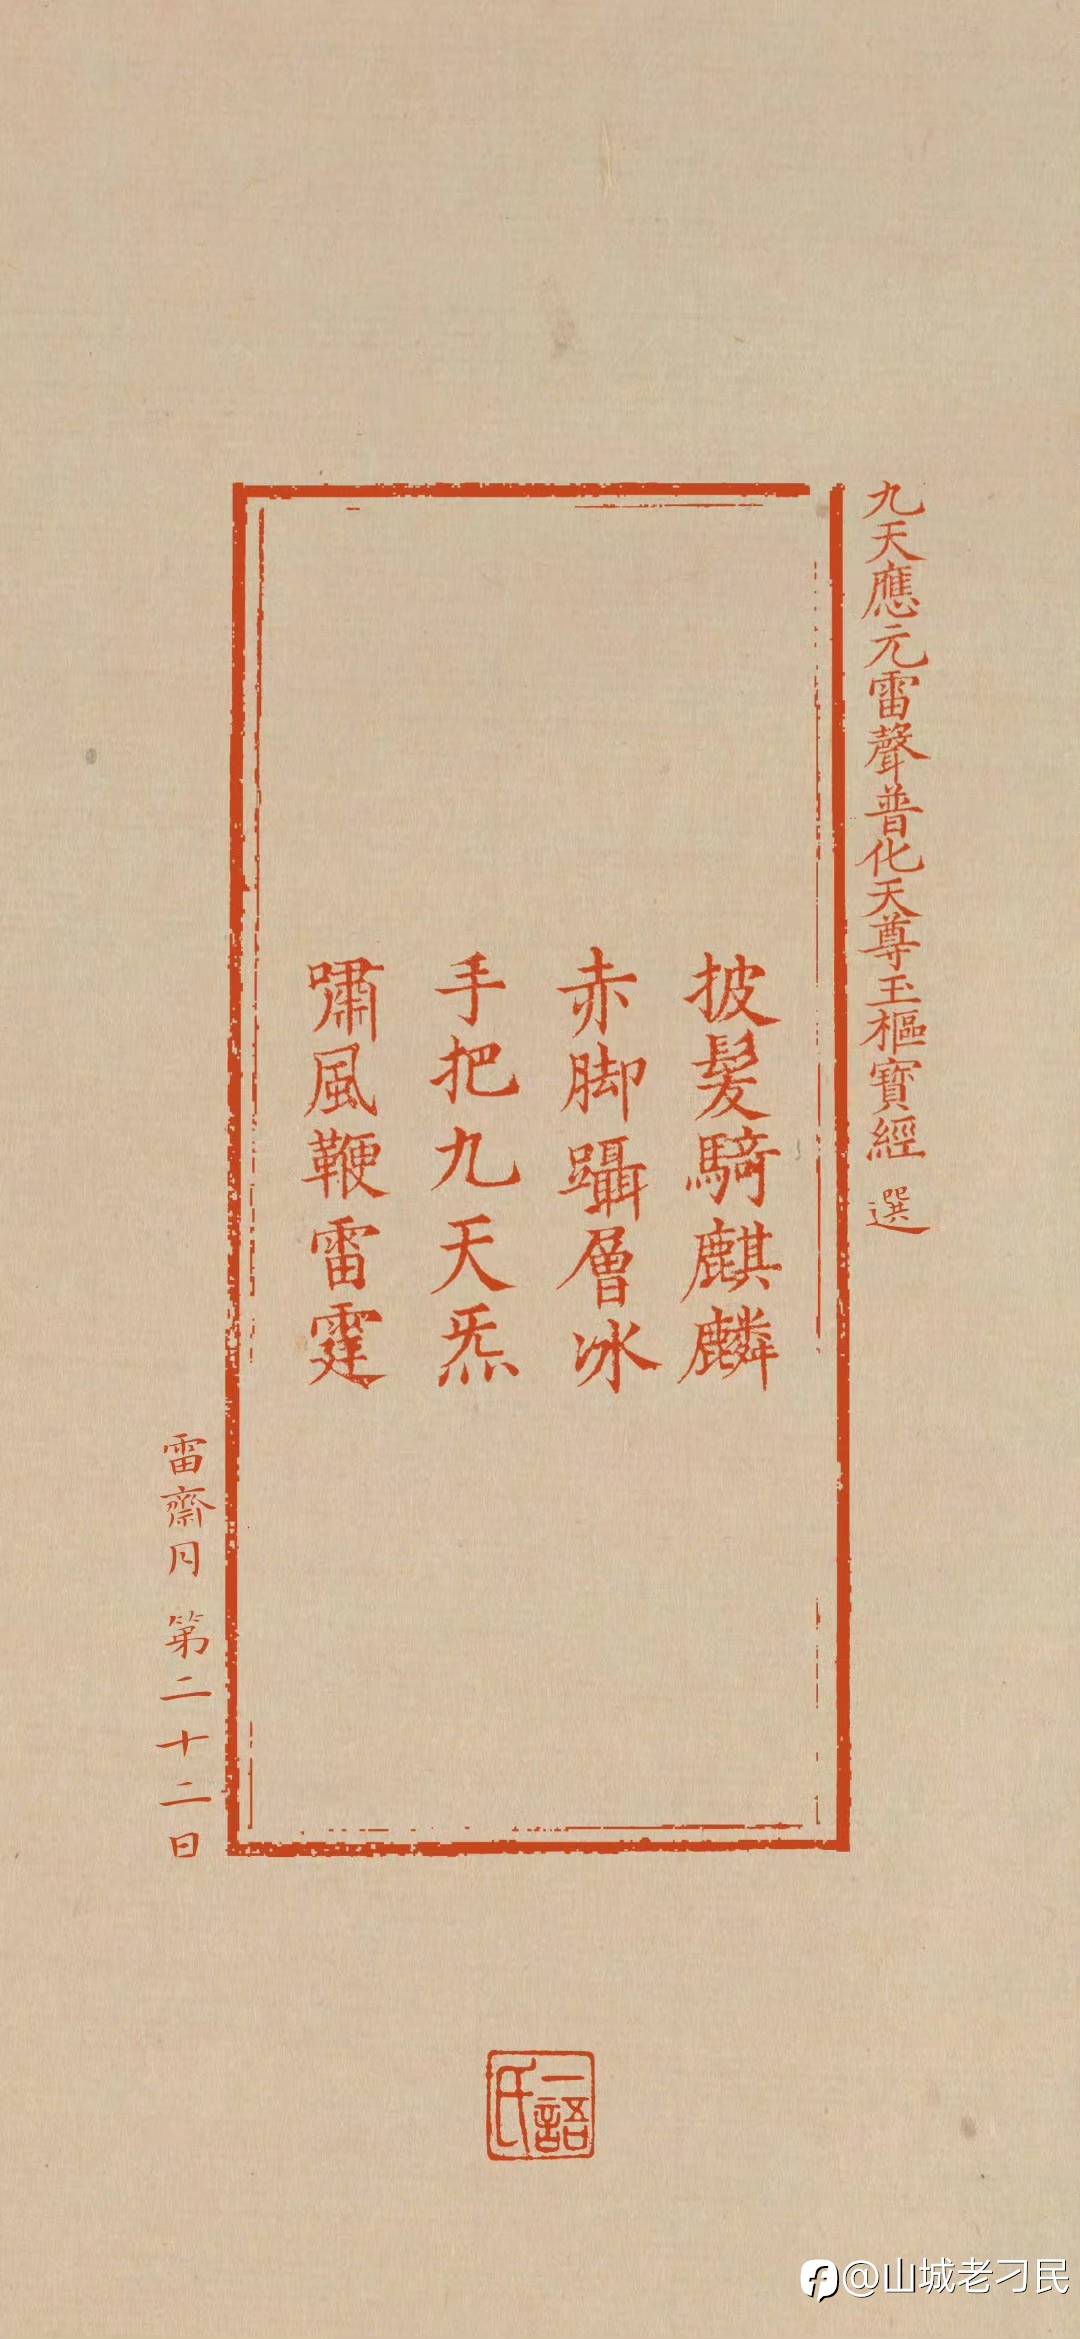 九天應元雷聲普化天尊玉樞寶經 選
披髮騎麒麟
赤脚躡層冰
手把九天炁
嘯風鞭雷霆
雷齋月 第二十二日
一語氏
@山城老刁民